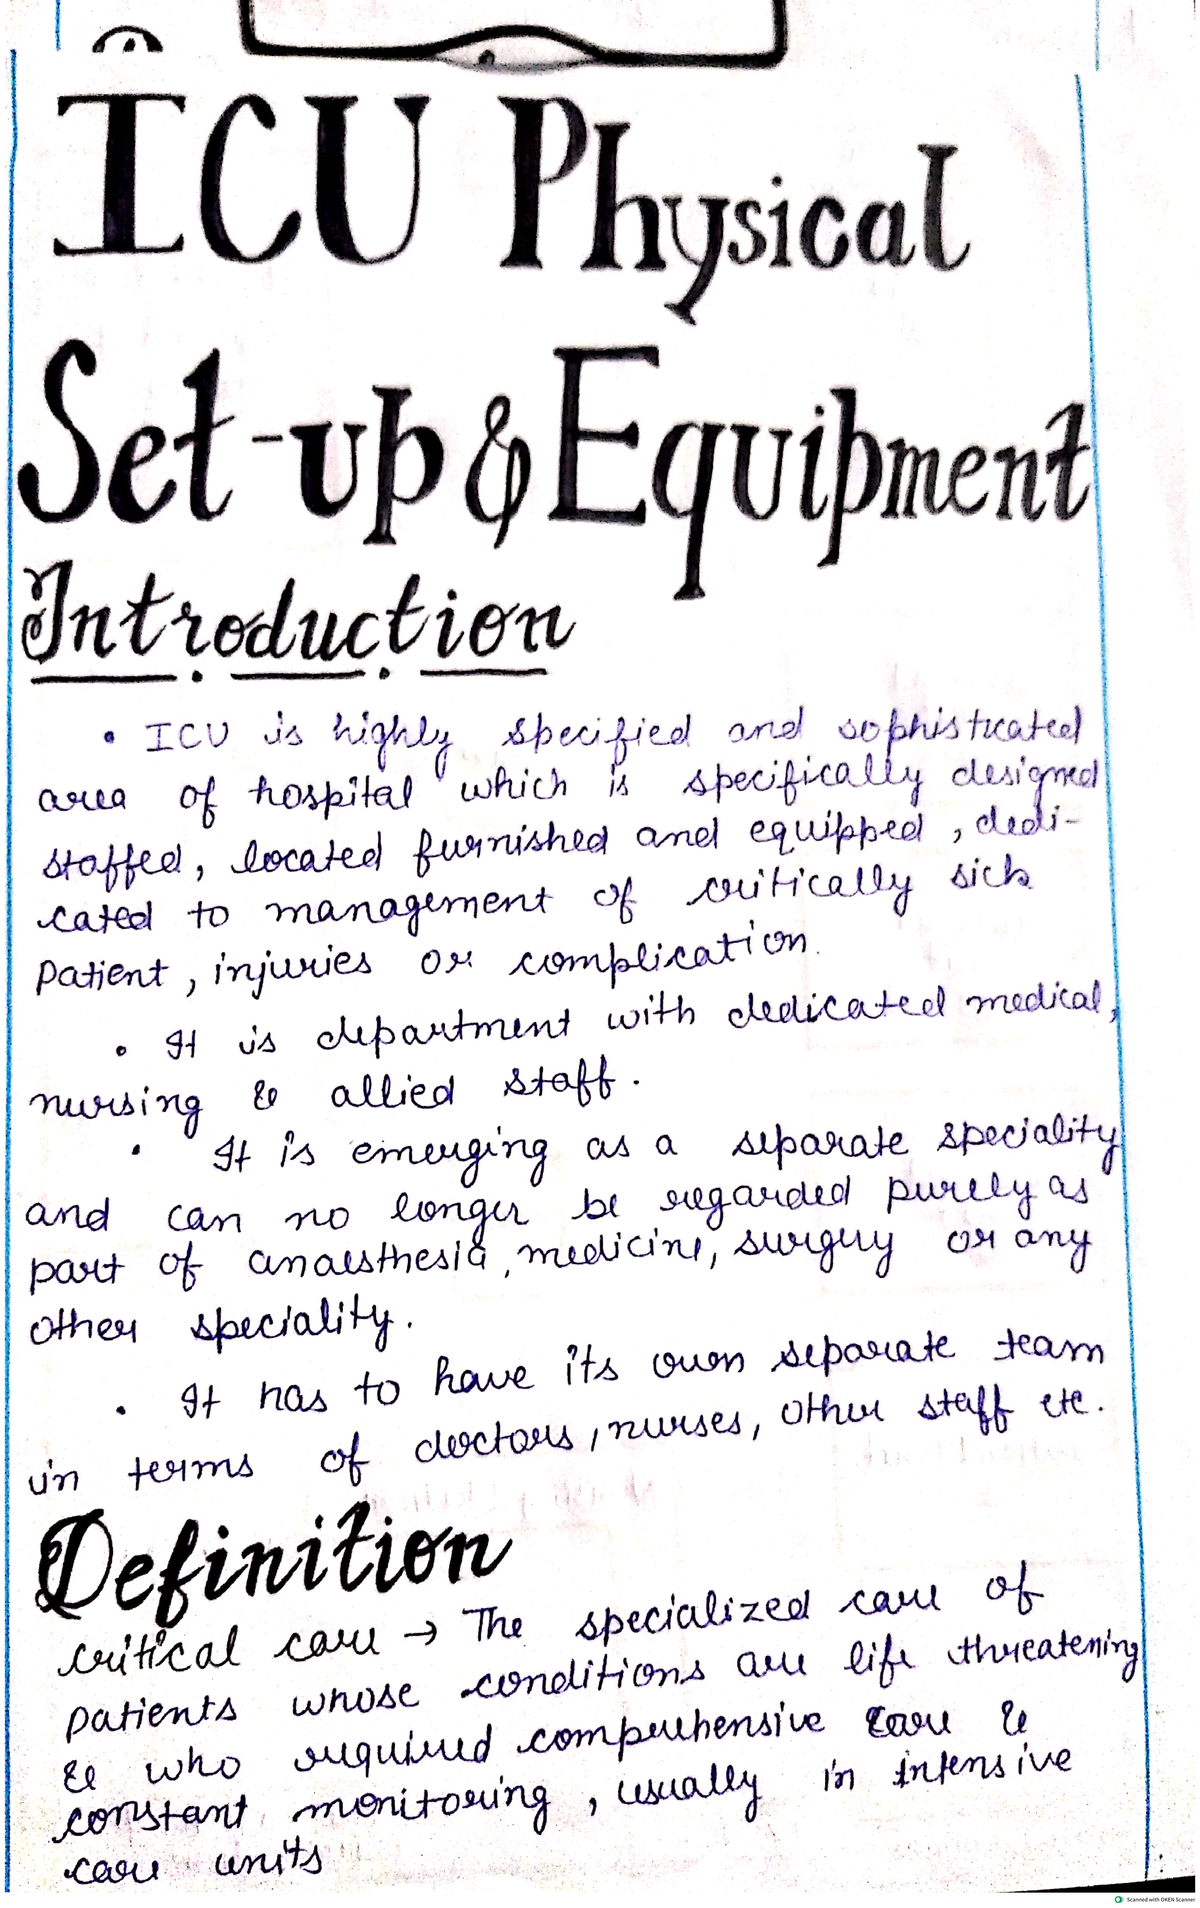 ICU Physical
Set-up & Equipment
Introduction
• ICU is highly specified and sophisticated
area of hospital which is specifically designed
staffed, located furnished and equipped, dedi-
cated to management of critically sick
patient, injuries or complication.
• It is department with dedicated medical,
nursing & allied staff.
• It is emerging as a separate speciality
and can no longer be regarded purely as
part of anaesthesia, medicine, surgery or any
other speciality.
• It has to have its own separate team
in terms of doctors, nurses, other staff etc.
Definition
critical care → The specialized care of
patients whose conditions are life threatening
& who required comprehensive care &
constant monitoring, usually in intensive
care units
Scanned with OKEN Scanner